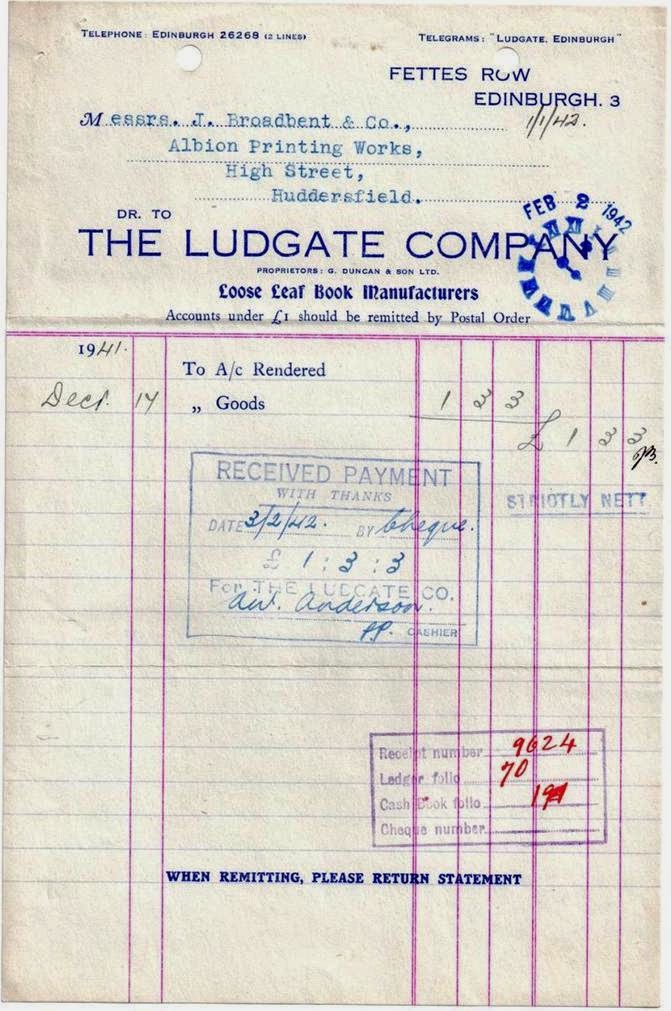 TELEPHONE: EDINBURGH 26268 (2 LINES) TELEGRAMS: "LUDGATE, EDINBURGH"
FETTES ROW
EDINBURGH. 3
Messrs. J. Broadbent & Co., 1/1/42.
Albion Printing Works,
High Street,
Huddersfield.
FEB 2 1942
DR. TO
THE LUDGATE COMPANY
PROPRIETORS: G. DUNCAN & SON LTD.
Loose Leaf Book Manufacturers
Accounts under £1 should be remitted by Postal Order
1941.
To A/c Rendered
Decr. 17 „ Goods 1 3 3
£ 1 3 3
STRICTLY NETT
RECEIVED PAYMENT
WITH THANKS
DATE 3/2/42. BY Cheque.
£ 1 : 3 : 3
For THE LUDGATE CO.
Anderson.
pp. CASHIER
Receipt number 9624
Ledger folio 70
Cash Book folio
Cheque number
WHEN REMITTING, PLEASE RETURN STATEMENT